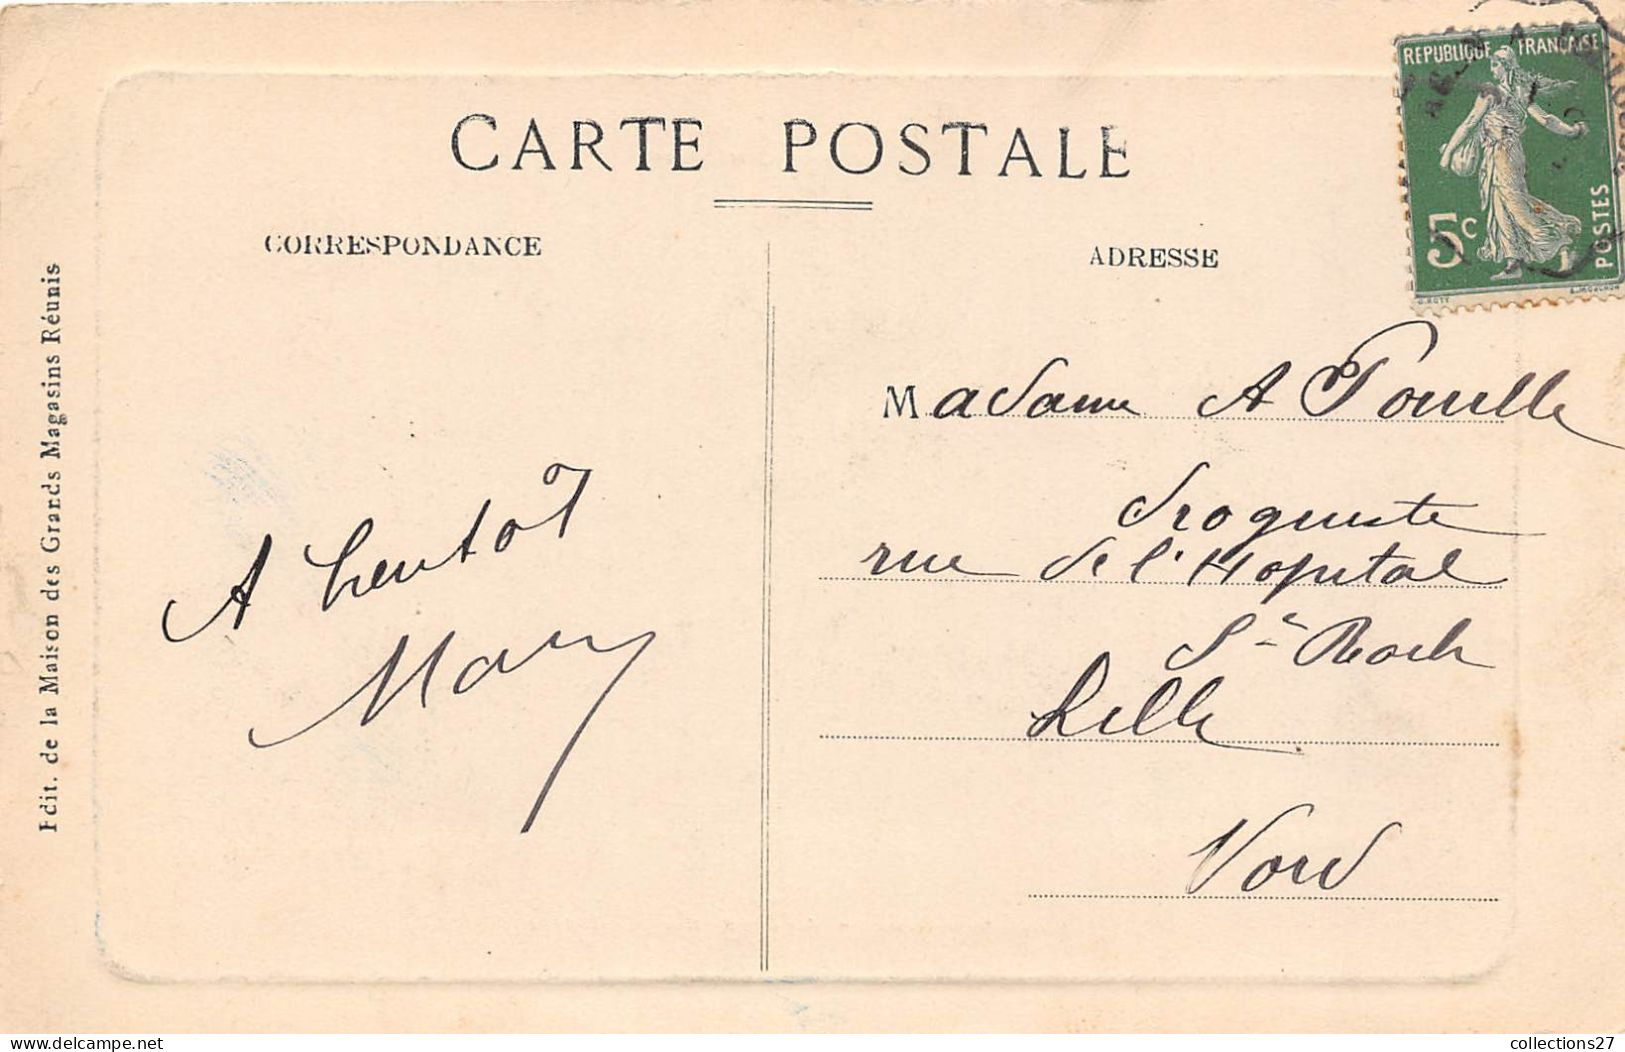 CARTE POSTALE
CORRESPONDANCE
ADRESSE
REPUBLIQUE FRANÇAISE
5c
POSTES
O. ROTY
L. MOUCHON
Edit. de la Maison des Grands Magasins Réunis
A bientôt
Mary
Madame A Pouille
droguiste
rue de l'Hopital
St Roch
Lille
Nord
delcampe.net
collections27